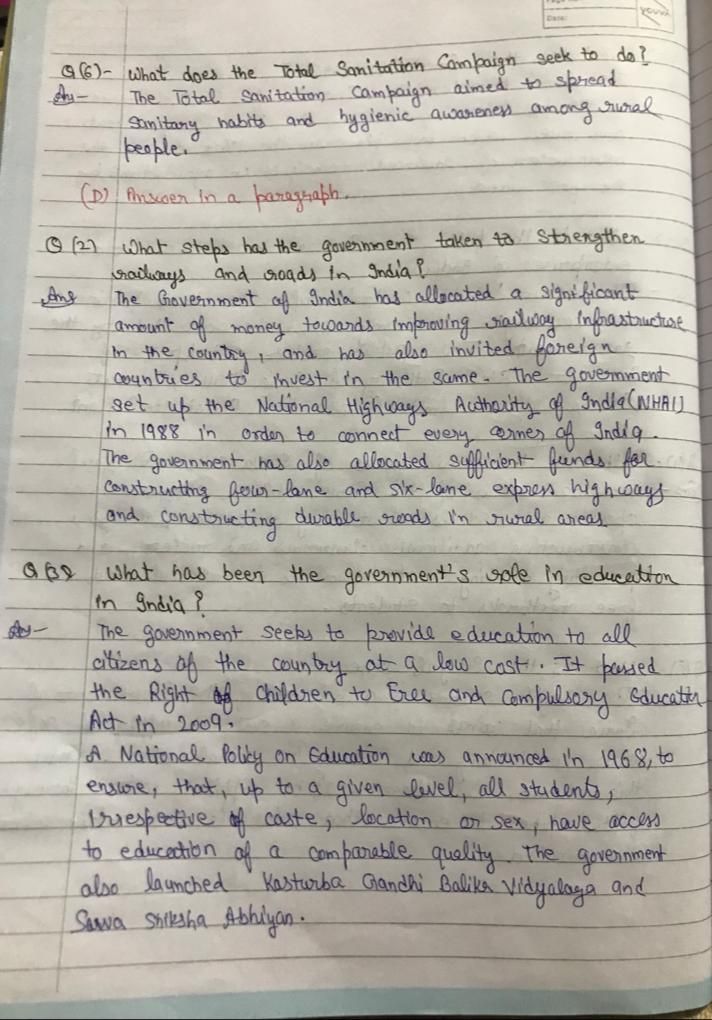 Date:
youva
Q(6)- What does the Total Sanitation Campaign seek to do?
An- The Total Sanitation Campaign aimed to spread
Sanitary habits and hygienic awareness among rural
people.
(D) Answer in a paragraph.
Q(2) What steps has the government taken to strengthen
railways and roads in India?
Ans The Government of India has allocated a significant
amount of money towards improving railway infrastructure
in the country, and has also invited foreign
countries to invest in the same. The government
set up the National Highways Authority of India (NHAI)
in 1988 in order to connect every corner of India.
The government has also allocated sufficient funds for
constructing four-lane and six-lane express highways
and constructing durable roads in rural areas
Q(3) What has been the government's role in education
in India?
An- The government seeks to provide education to all
citizens of the country at a low cost. It passed
the Right of Children to Free and Compulsory Education
Act in 2009.
A National Policy on Education was announced in 1968, to
ensure, that, up to a given level, all students,
irrespective of caste, location or sex, have access
to education of a comparable quality. The government
also launched Kasturba Gandhi Balika Vidyalaya and
Sarva Shiksha Abhiyan.